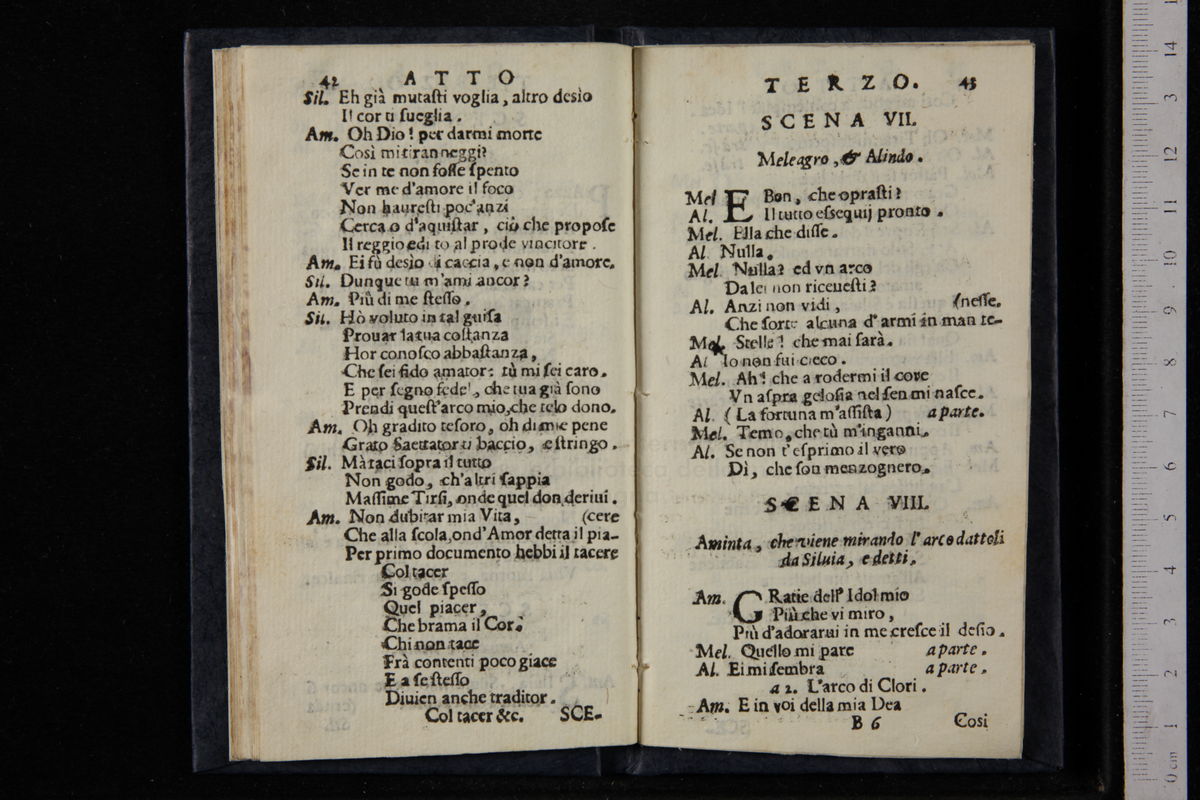 42 ATTO
Sil. Eh già mutaſti voglia, altro desìo
Il cor ti ſueglia.
Am. Oh Dio! per darmi morte
Così mi tiranneggi?
Se in te non foſſe ſpento
Ver me d'amore il foco
Non haureſti poc'anzi
Cercato d'aquiſtar, ciò che propoſe
Il reggio editto al prode vincitore.
Am. Ei fù desìo di caccia, e non d'amore.
Sil. Dunque tu m'ami ancor?
Am. Più di me ſteſſo.
Sil. Hò voluto in tal guiſa
Prouar la tua coſtanza
Hor conoſco abbaſtanza,
Che ſei fido amator: tù mi ſei caro.
E per ſegno fedel, che tua già ſono
Prendi queſt'arco mio, che telo dono.
Am. Oh gradito teſoro, oh di mie pene
Grato Saettator ti baccio, e ſtringo.
Sil. Mà taci ſopra il tutto
Non godo, ch'altri ſappia
Maſſime Tirſi, onde quel don deriui.
Am. Non dubitar mia Vita, (cere
Che alla ſcola, ond'Amor detta il pia-
Per primo documento hebbi il tacere
Col tacer
Si gode ſpeſſo
Quel piacer,
Che brama il Cor.
Chi non tace
Frà contenti poco giace
E a ſe ſteſſo
Diuien anche traditor.
Col tacer &c. SCE-
TERZO. 43
SCENA VII.
Meleagro, & Alindo.
Mel EBon, che opraſti?
Al. Il tutto eſsequij pronto.
Mel. Ella che diſſe.
Al Nulla.
Mel. Nulla? ed vn arco
Da lei non riceueſti?
Al. Anzi non vidi, (neſſe.
Che forte alcuna d'armi in man te-
Mel. Stelle! che mai ſarà.
Al Io non fui cieco.
Mel. Ah! che a rodermi il core
Vn aſpra geloſia nel ſen mi naſce.
Al. (La fortuna m'aſſiſta) a parte.
Mel. Temo, che tù m'inganni.
Al. Se non t'eſprimo il vero
Dì, che ſon menzognero.
SCENA VIII.
Aminta, che viene mirando l'arco dattoli
da Siluia, e detti.
Am. GRatie dell' Idol mio
Più che vi miro,
Più d'adorarui in me creſce il deſio.
Mel. Quello mi pare a parte.
Al. Ei mi ſembra a parte.
a 2. L'arco di Clori.
Am. E in voi della mia Dea
B 6 Cosi